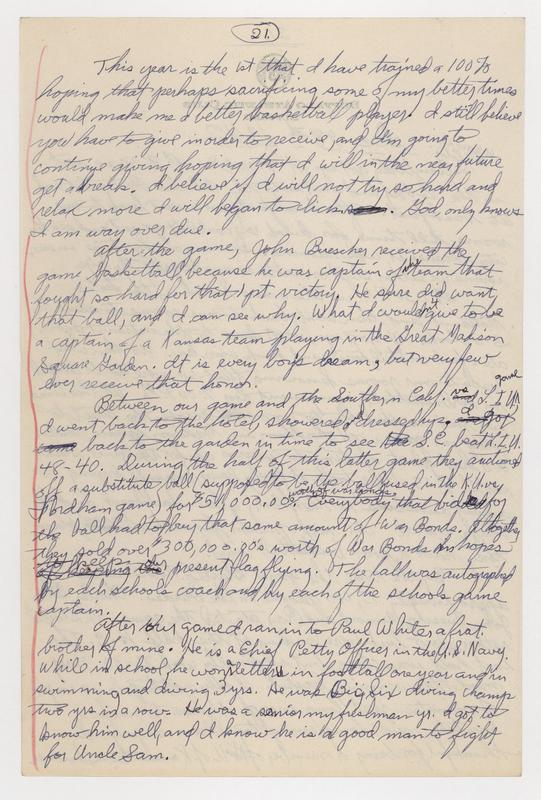 21.
This year is the 1st that I have trained a 100%
hoping that perhaps sacrificing some of my better times
would make me a better basketball player. I still believe
you have to give in order to receive, and I'm going to
continue giving hoping that I will in the near future
get a break. I believe if I will not try so hard and
relax more I will began to click. God only knows
I am way over due.
After the game, John Buescher received the
game basketball because he was captain of the team that
fought so hard for that 1 pt victory. He sure did want
that ball, and I can see why. What I wouldn't give to be
a captain of a Kansas team playing in the Great Madison
Square Garden. It is every boys dream, but very few
ever receive that honor.
Between our game and the Southern Calif. vs L.I.U. game
I went back to the hotel, showered & dressed up. I got
back to the garden in time to see S.C. beat L.I.U.
48-40. During the half of this latter game they auctioned
off a substitute ball (supposed to be the ball used in the K.U. vs
Fordham game) for $50,000.00 worth of war bonds. Everybody that bid for
the ball had to buy that same amount of War Bonds. Altogether
they sold over $300,000.00's worth of War Bonds in hopes
to keep our present flag flying. The ball was autographed
by each schools coach and by each of the schools game
captain.
After our game I ran in to Paul White a frat.
brother of mine. He is a Chief Petty Officer in the U.S. Navy.
While in school, he won letters in football one year and in
swimming and diving 3 yrs. He was Big Six diving champ
two yrs in a row. He was a senior my freshman yr. I got to
know him well, and I know he is a good man to fight
for Uncle Sam.